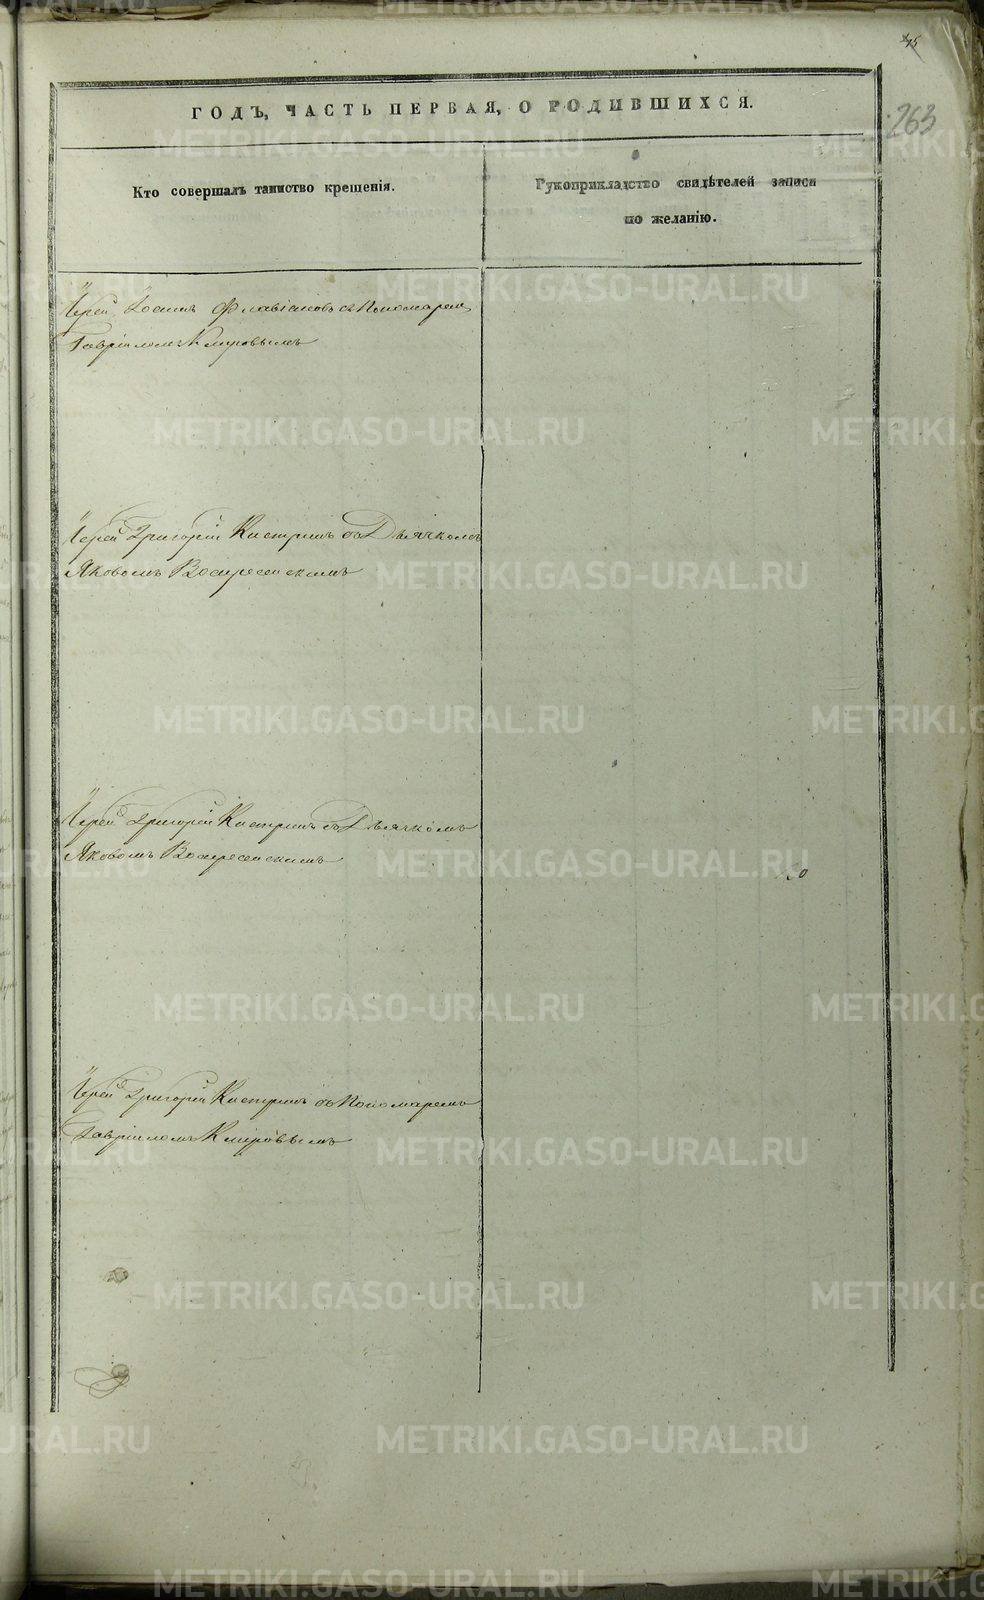 263
ГОДЪ, ЧАСТЬ ПЕРВАЯ, О РОДИВШИХСЯ.
Кто совершалъ таинство крещенія.
Рукоприкладство свидѣтелей записи
по желанію.
Іерей Іоаннъ Флавіановъ съ Пономаремъ
Гавріиломъ
Іерей Григорій съ Дьячкомъ
Яковомъ Воскресенскимъ
Іерей Григорій съ Дьячкомъ
Яковомъ Воскресенскимъ
Іерей Григорій съ Пономаремъ
Гавріиломъ
METRIKI.GASO-URAL.RU